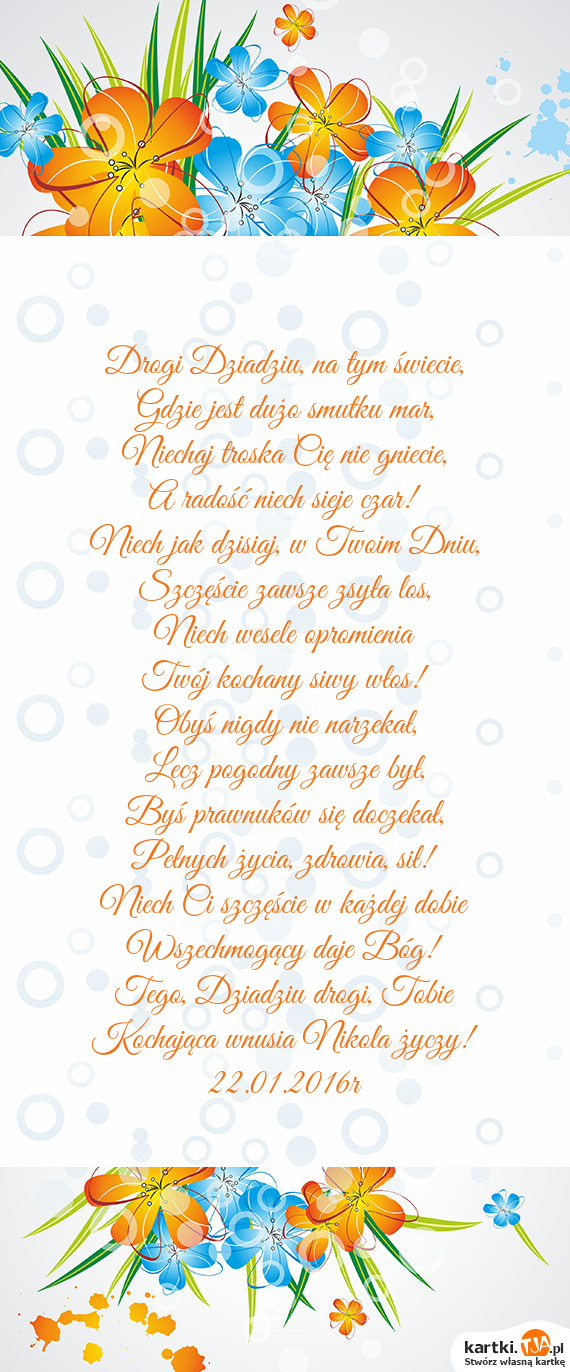 Drogi Dziadziu, na tym świecie,
Gdzie jest dużo smutku mar,
Niechaj troska Cię nie gniecie,
A radość niech sieje czar!
Niech jak dzisiaj, w Twoim Dniu,
Szczęście zawsze zsyła los,
Niech wesele opromienia
Twój kochany siwy włos!
Obyś nigdy nie narzekał,
Lecz pogodny zawsze był,
Byś prawnuków się doczekał,
Pełnych życia, zdrowia, sił!
Niech Ci szczęście w każdej dobie
Wszechmogący daje Bóg!
Tego, Dziadziu drogi, Tobie
Kochająca wnusia Nikola życzy!
22.01.2016r
kartki.TJA.pl
Stwórz własną kartkę